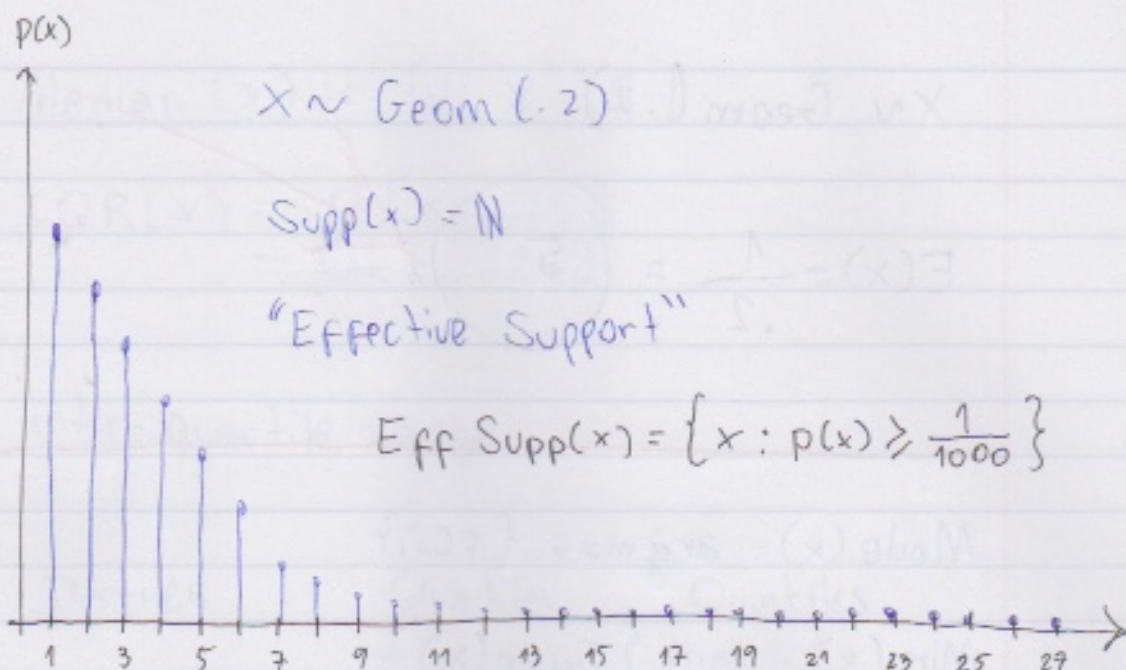 p(x)
X ~ Geom (.2)
Supp(x) = ℕ
"Effective Support"
Eff Supp(x) = { x : p(x) ⩾ 1/1000 }
1 3 5 7 9 11 13 15 17 19 21 23 25 27